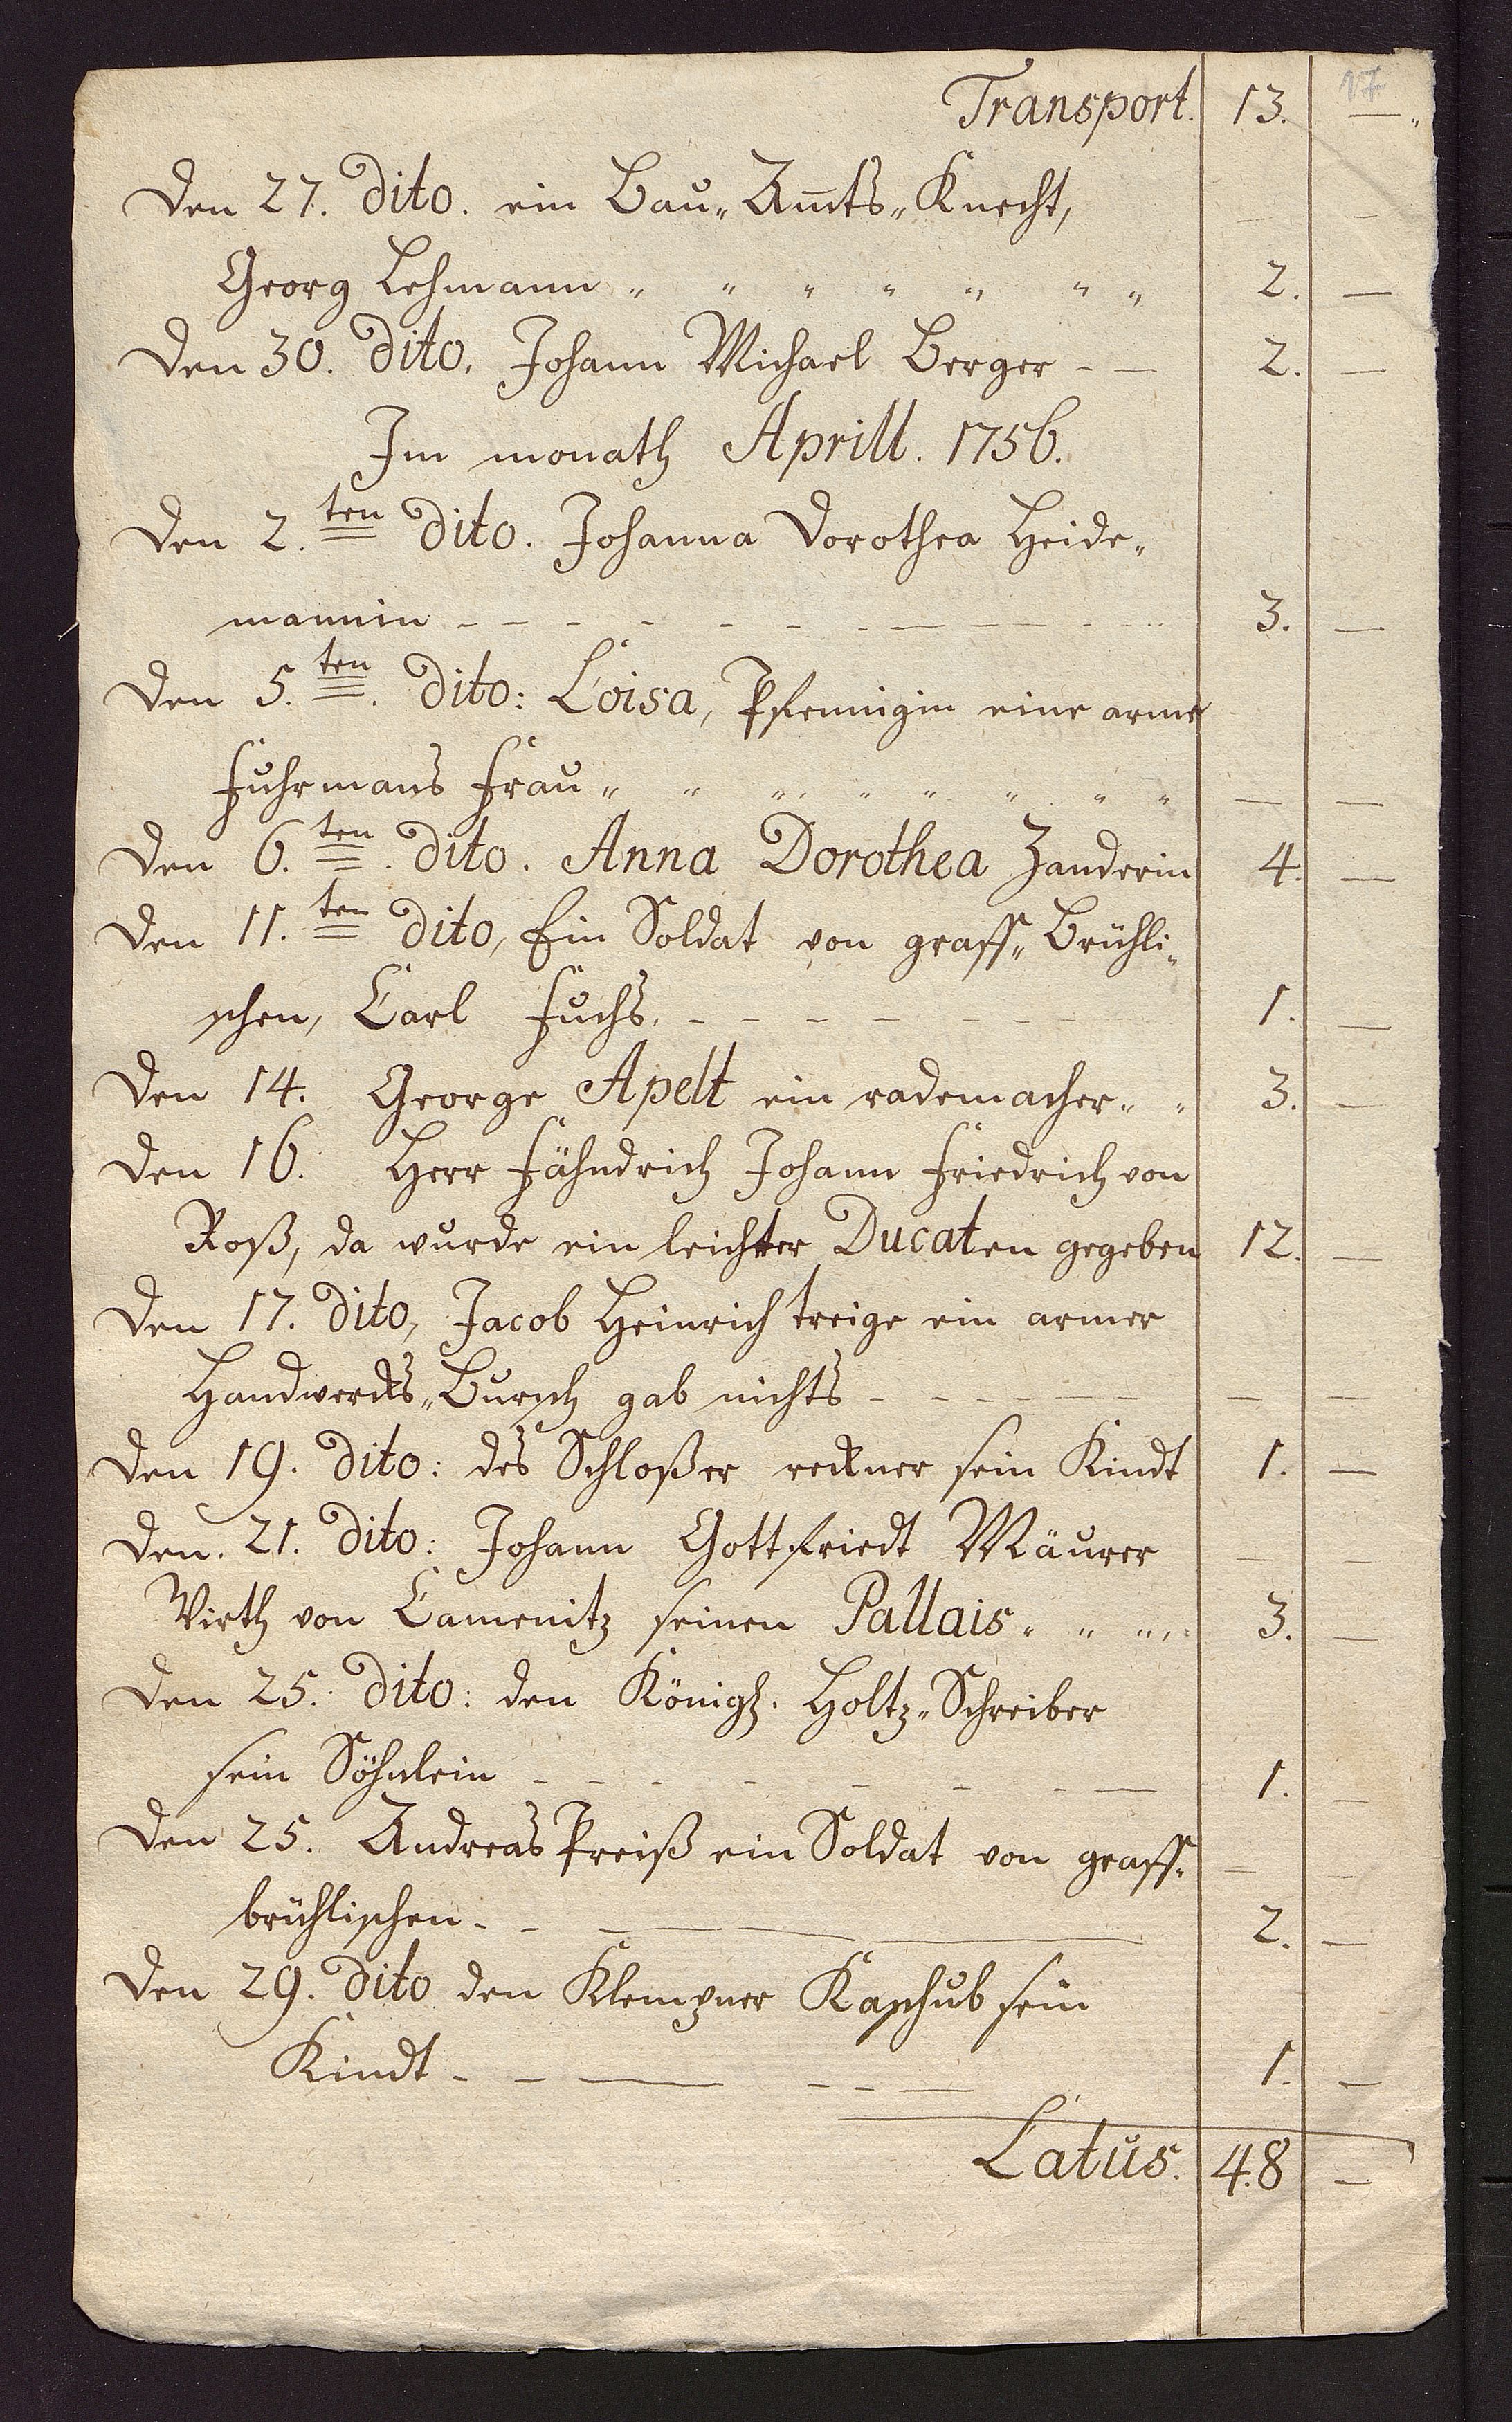 17
Transport. 13. —
Den 27. dito. ein Bau„ Am̅ts„ Knecht,
Georg Lehmann „ „ „ „ „ „ „ 2. —
Den 30. dito. Johann Michael Berger - — 2. —
Im monath Aprill. 1756.
Den 2.ten dito. Johanna Dorothea Heide„
mannin - - - - - - - - — — - - 3. —
Den 5.ten. dito: Loisa, Pfennigin eine arme
Fuhrmans Frau „ „ „ „ „ „ „ „ — —
Den 6.ten. dito. Anna Dorothea Zanderin 4. —
Den 11.ten dito, Ein Soldat von graff„ Brühli„
schen, Carl Fuchs. - - - - - - - 1. —
Den 14. George Apelt ein rademacher „ „ 3. —
Den 16. Herr Fähndrich Johann Friedrich von
Roß, da wurde ein leichter Ducaten gegeben 12. —
Den 17. dito, Jacob Heinrich treige ein armer
Handwercks„ Bursch gab nichts - - - — - — —
Den 19. dito: des Schloßer reckner sein Kindt 1. —
Den. 21. dito: Johann Gottfriedt Mäurer — —
Wirth von Camenitz seinen Pallais „ „ „ „ 3. —
Den 25. dito: den Königl. Holtz„ Schreiber
sein Söhnlein - - - - - - - — 1. —
Den 25. Andreas Preiß ein Soldat von graff„ —
brühlischen - - — — 2. —
Den 29. dito den Klempner Kaschub sein
Kindt - - — - - — 1. —
Latus. 48 —